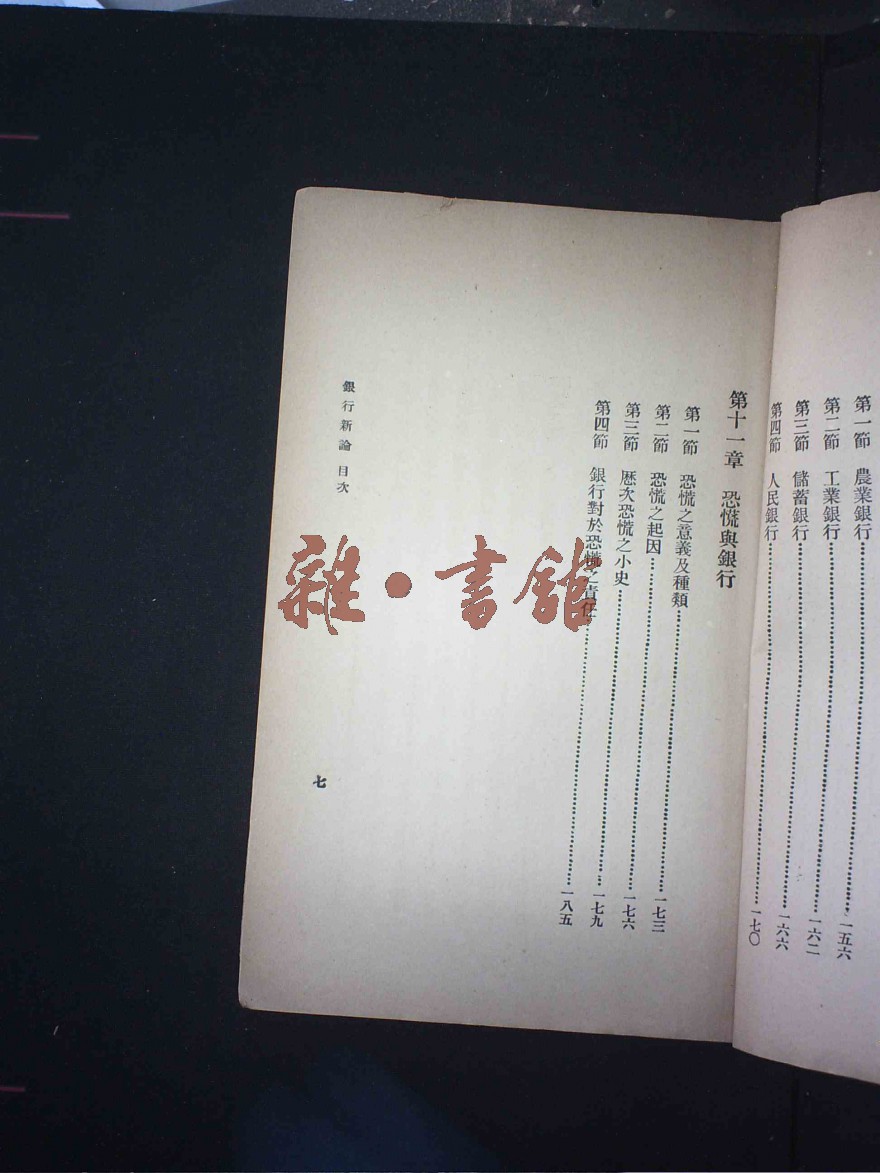 第一節　農業銀行……一五六
第二節　工業銀行……一六二
第三節　儲蓄銀行……一六六
第四節　人民銀行……一七〇
第十一章　恐慌與銀行
第一節　恐慌之意義及種類……一七三
第二節　恐慌之起因……一七六
第三節　歷次恐慌之小史……一七九
第四節　銀行對於恐慌之責任……一八五
銀行新論　目次
七
雜·書館